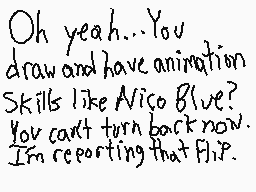 Oh yeah...You
draw and have animation
skills like Nico Blue?
You can't turn back now.
I'm reporting that Flip.